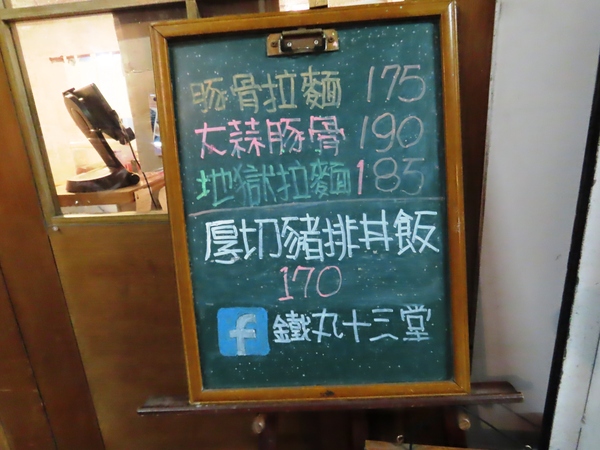 豚骨拉麵 175
大蒜豚骨 190
地獄拉麵 185
厚切豬排丼飯
170
f 鐵丸十三堂